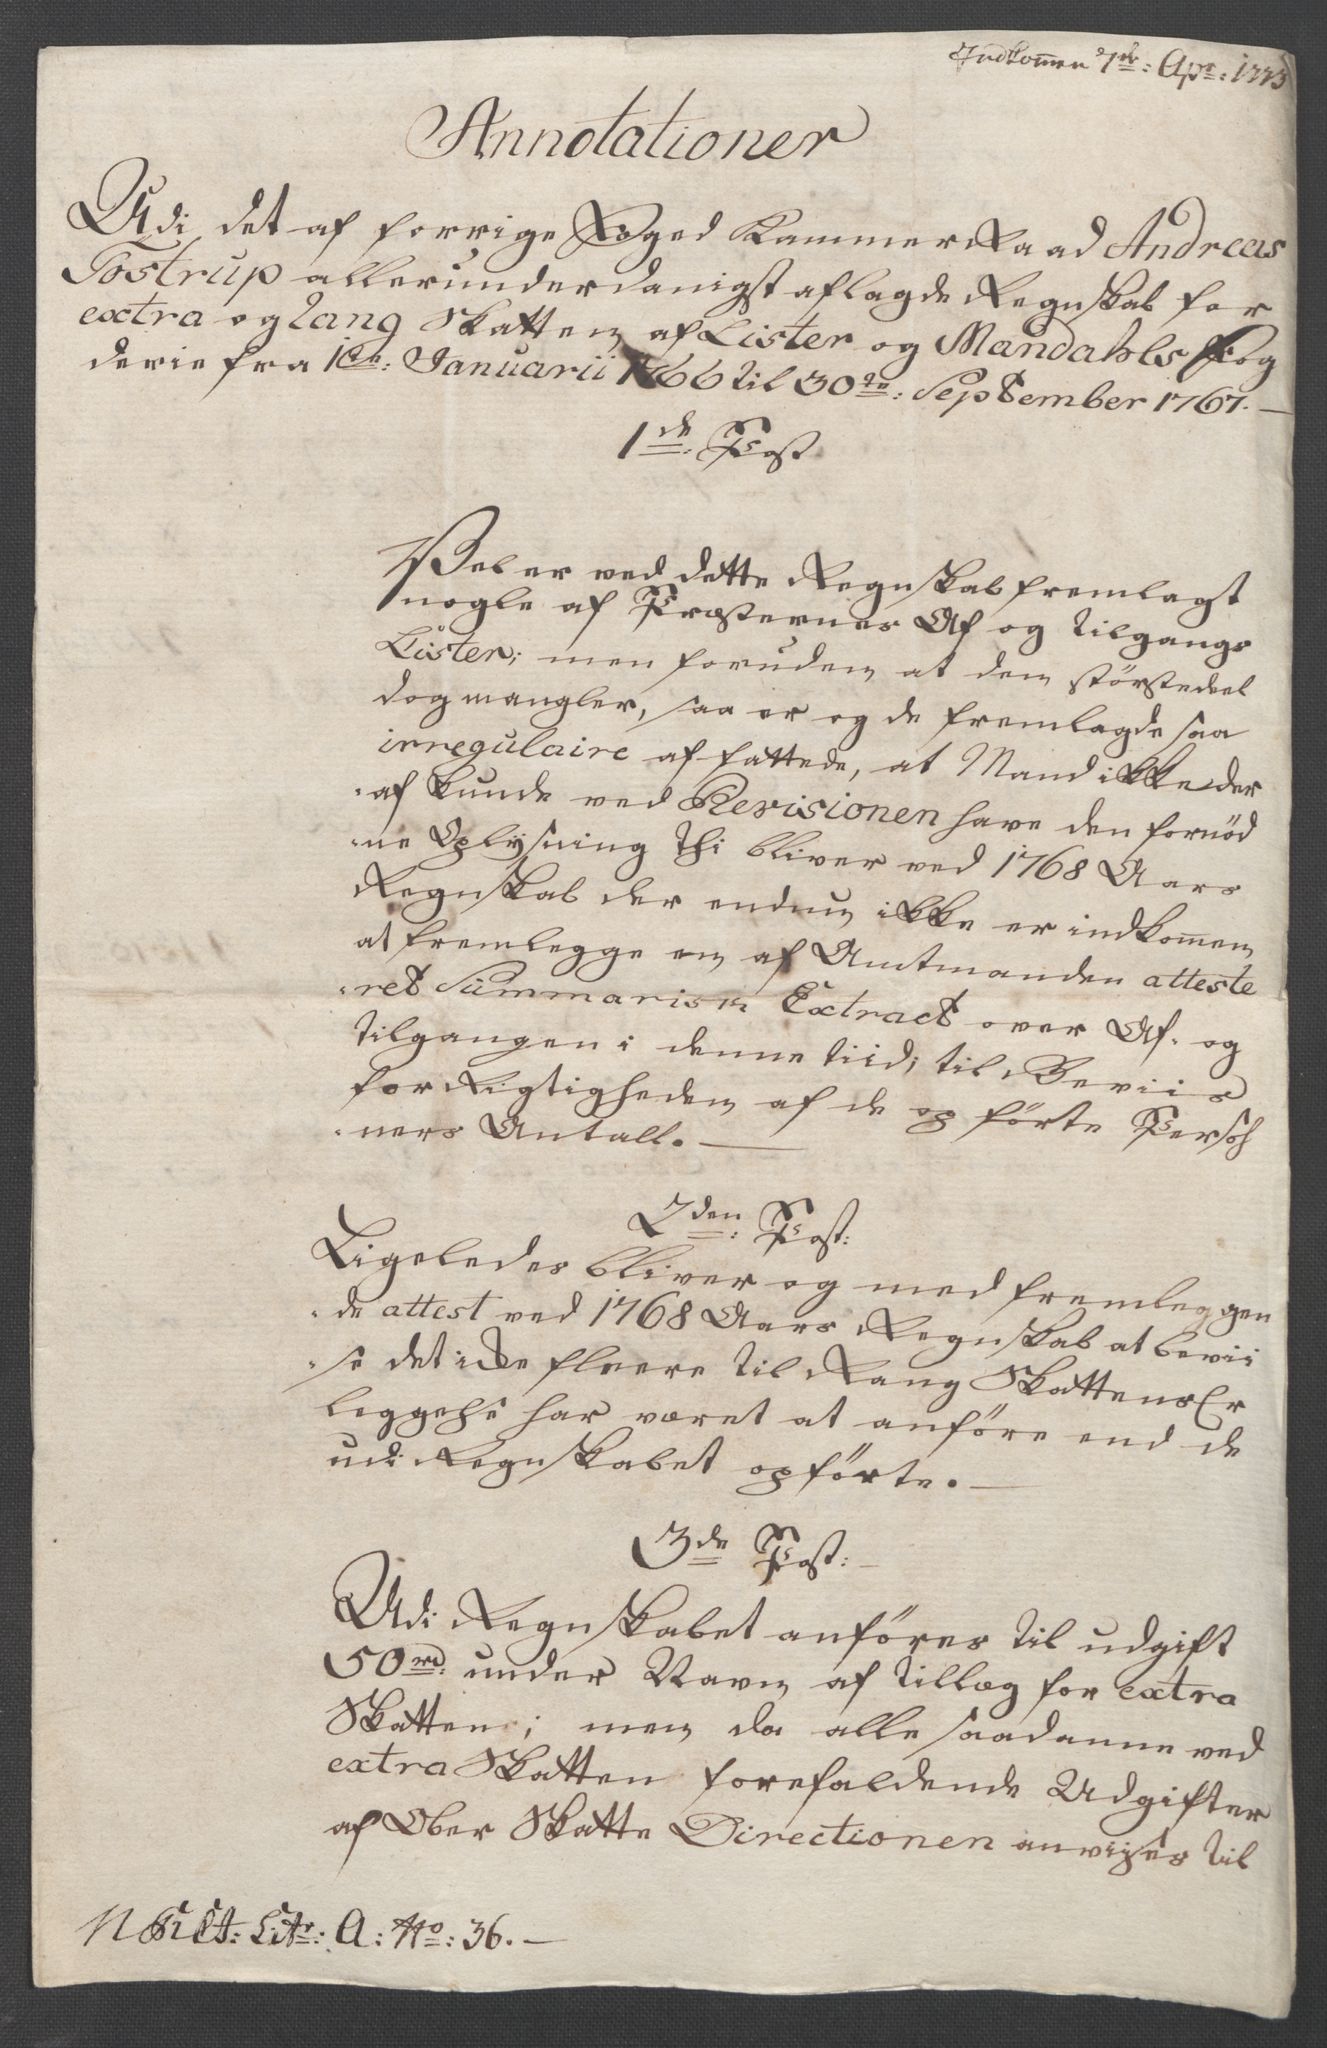 Indkommen 7de: Apr: 1773
Annotationer
Udi det af forrige Foged Kammer Raad Andreas
Tostrup allerunderdanigst aflagde Regnskab for
extra og Rang Skatten af Lister og Mandahls Fog
derie fra 1te: Januarii 1766 til 30te: September 1767.
1de: Post
Vel er ved dette Regnskab fremlagt
nogle af Præsternes Af og tilgangs
Lister; men foruden at dem störstedeel
dog mangler, saa er og de fremlagde saa
irregulaire af fattede, at Mand ikke der
-af kunde ved Revisionen have den fornöd
-ne Oplysning thi bliver ved 1768 Aars
Regnskab der endnu ikke er indkommen
at fremlegge en af Amtmanden atteste
-ret Summarisk Extract over Af- og
tilgangen i denne tiid; til Beviis
for Rigtigheden af de op förte Persoh
-ners Antall.
2den: Post:
Ligeledes bliver og med fremleggen
-de attest ved 1768 Aars Regnskab at bevii
-se det icke fleere til Rang Skattens Er
leggelse har været at anföre end de
udi Regnskabet opförte.
3de Post:
Udi Regnskabet anföres til udgift
50rd. under Navn af tillæg for extra
Skatten; men da alle saadanne ved
extra Skatten forefaldende Udgifter
af Ober Skatte Directionen anvises til
Litr: A: No: 36.